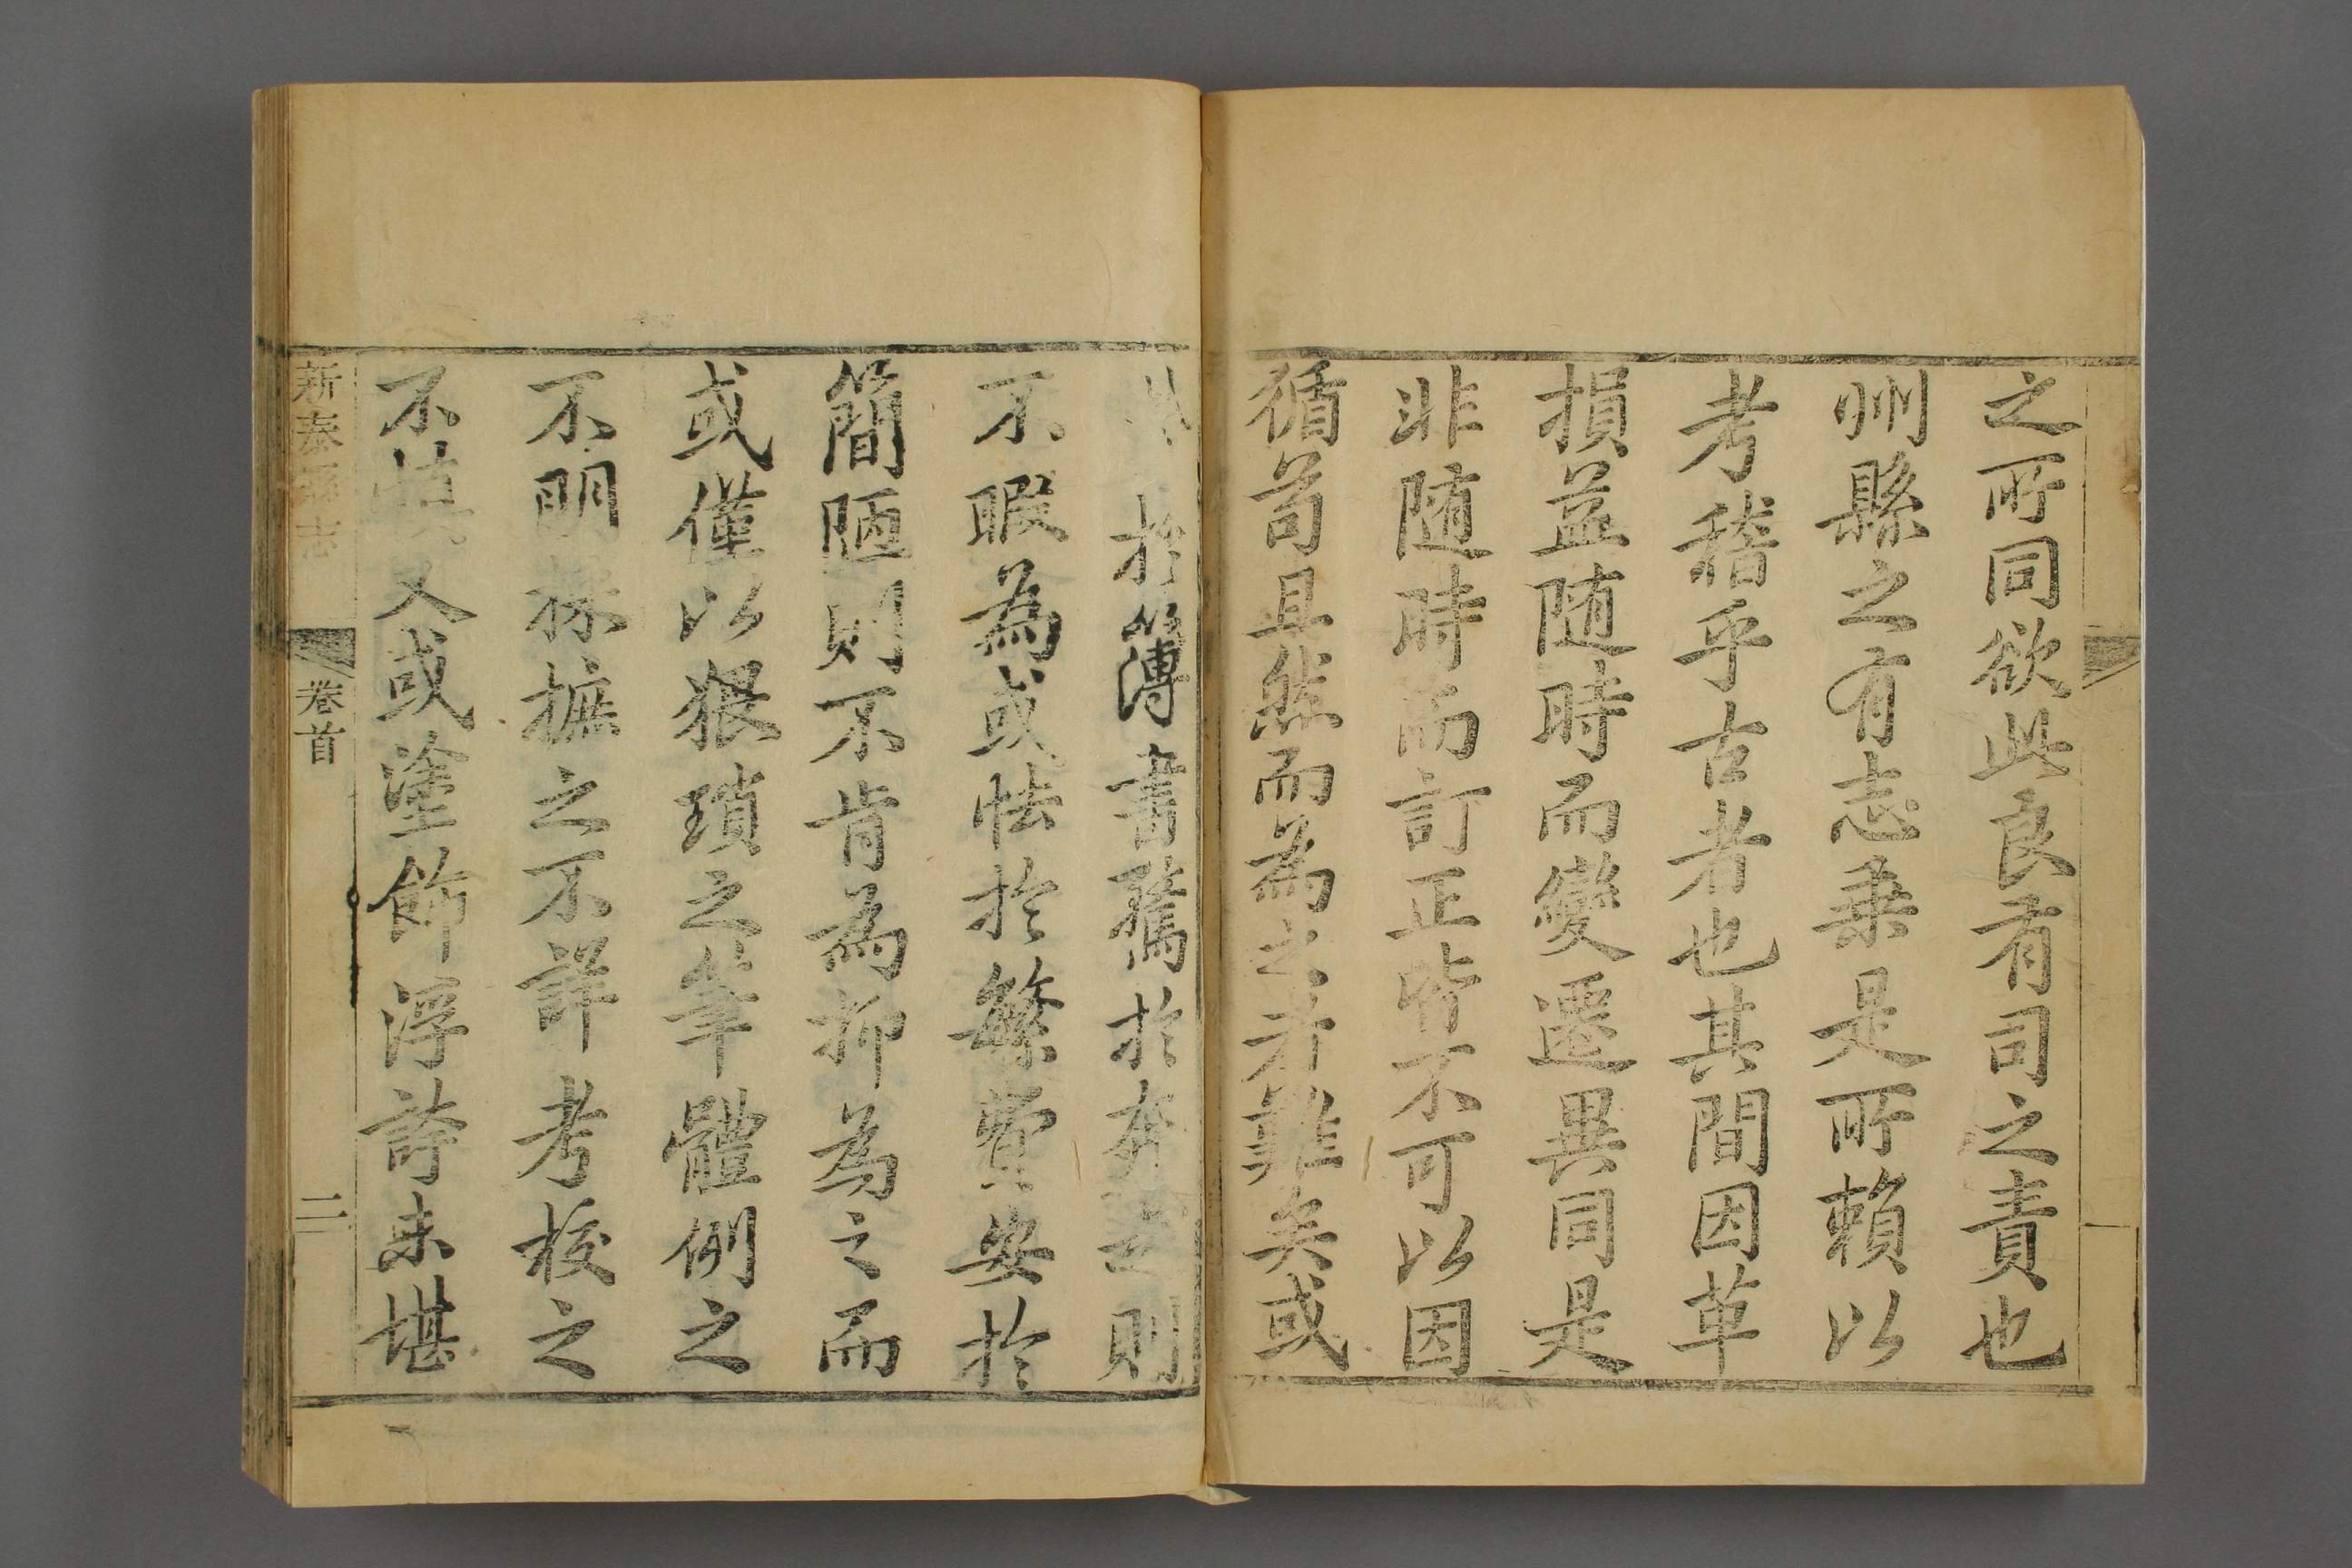 之所同欲此良有司之責也
州縣之有志乗是所賴以
考稽乎古者也其間因革
損益随時而變遷異同是
非随時而訂正皆不可以因
循苟且然而為之者難矣或
於簿書鶩於奔走則
不暇為或怯於繁費安於
簡陋則不肯為抑為之而
或僅以猥瑣之筆體例之
不明採摭之不詳考校之
不又或塗飾浮誇未堪
新泰縣志 卷首 二